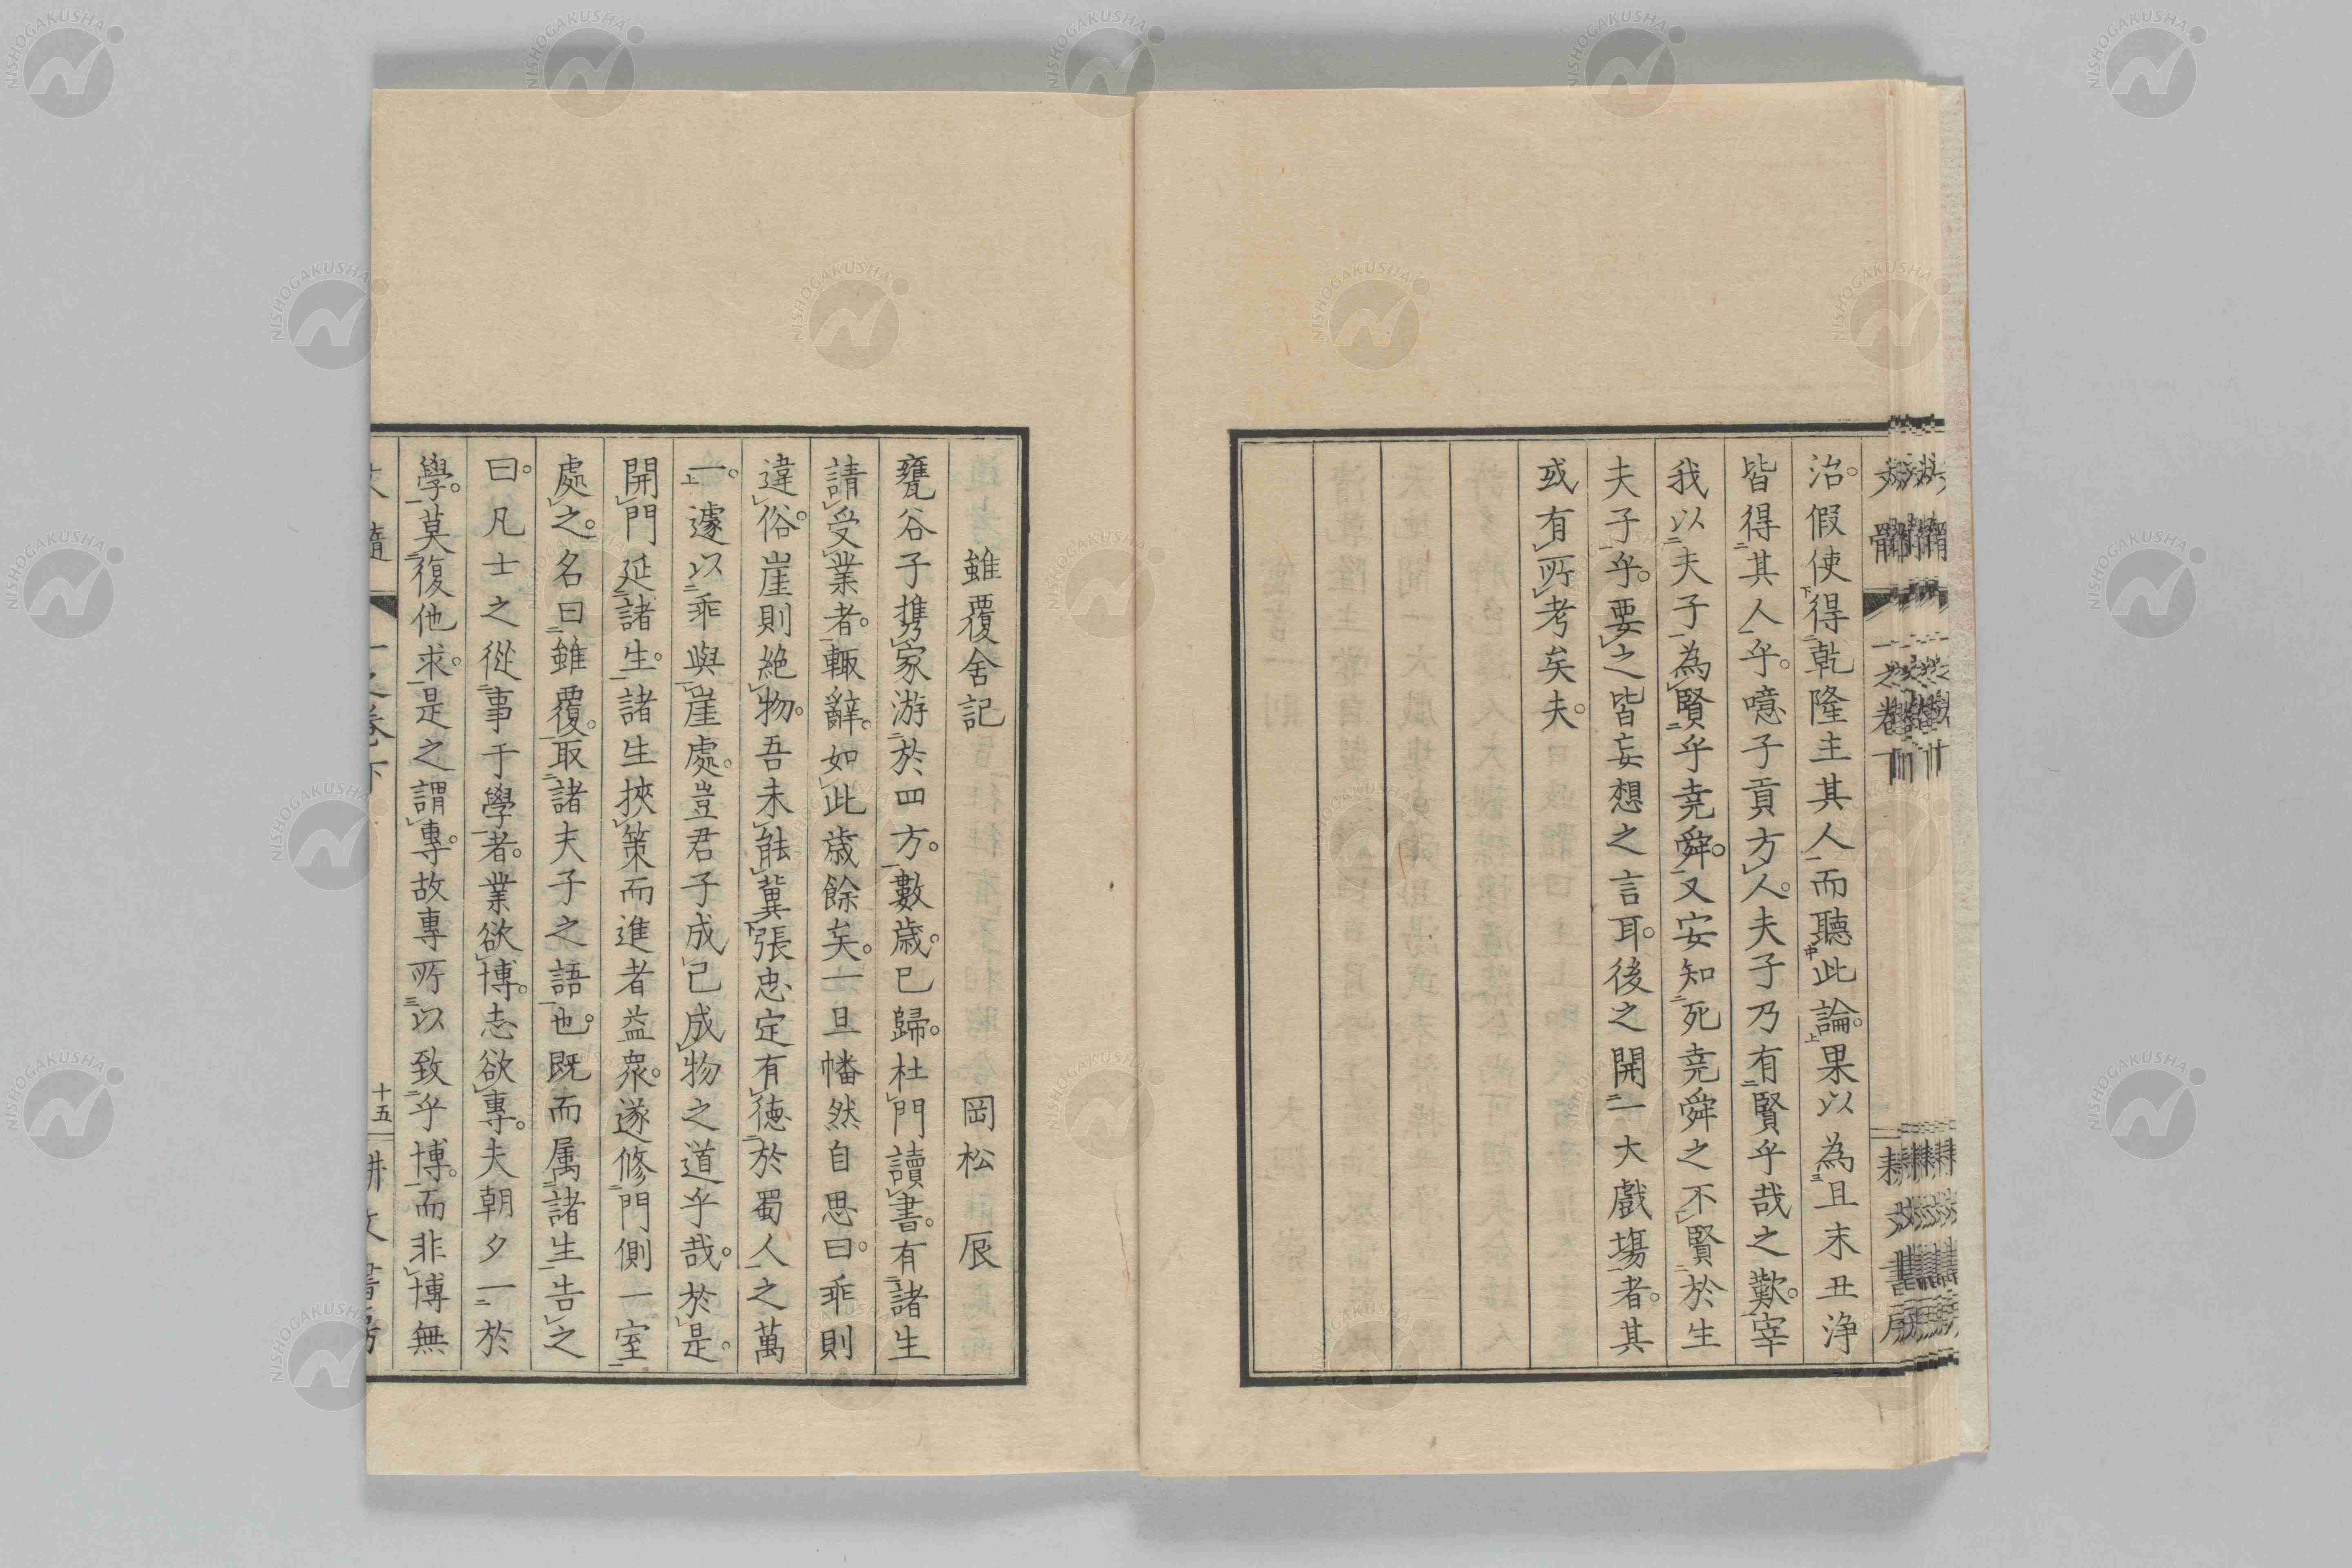 治。假使得乾隆主其人而聽此論。果以為且末丑浄
皆得其人乎。噫子貢方人。夫子乃有賢乎哉之歎。宰
我以夫子為賢乎堯舜。又安知死堯舜之不賢於生
夫子乎。要之皆妄想之言耳。後之開一大戲場者。其
或有所考矣夫。
雖覆舍記
岡松 辰
甕谷子攜家游於四方。數歲已歸。杜門讀書。有諸生
請受業者。輒辭。如此歲餘矣。一旦幡然自思曰。乖則
違俗。崖則絶物。吾未能冀張忠定有德於蜀人之萬
一。遽以乖與崖處。豈君子成己成物之道乎哉。於是。
開門延諸生。諸生挾策而進者益衆。遂修門側一室
處之。名曰雖覆。取諸夫子之語也。既而属諸生告之
曰。凡士之從事于學者。業欲博。志欲專。夫朝夕一於
學。莫復他求。是之謂專。故專所以致乎博。而非博無
十五
NISHOGAKUSHA